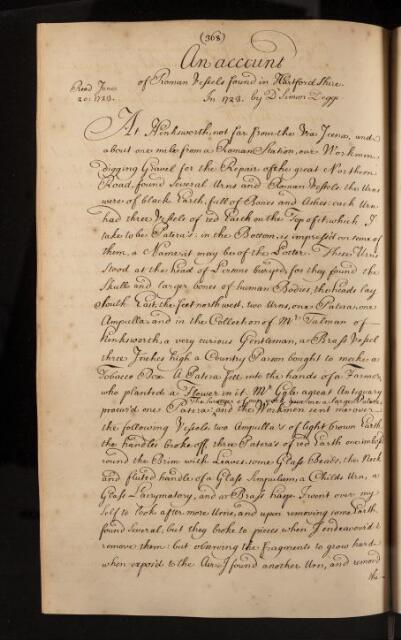 (368)
An account
of Roman Vessels found in Hartford Shire
In 1723. by Dr Simon Degge
Read June
20: 1723.
At Hinksworth, not far from the Via Icena, and
about one mile from a Roman Station, our Workmen
digging Gravel for the Repair of the great Northern
Road, found Several Urns and Roman Vessels. the Urns
were of black Earth, full of Bones and Ashes: each Urn
had three Vessels of red Earth on the Top of it. which I
take to be Patera's: in the Bottom, is impress'd on some of
them, a Name, it may be of the Potter. These Urns
Stood at the head of Persons buryed, for they found the
Skulls and larger bones of human Bodies, the heads lay
South East, the feet northwest, two Urns, one Patara, one
Ampulla and in the Collection of Mr Talman of
Hinksworth, a very curious Gentleman, a Brass Vessel
three Inches high a Country Parson bought to make a
Tobacco Box A Patera fell into the hands of a Farmer
who planted a Flower in it. Mr Gale a great Antiquary
procur'd one Patera: and the Workmen sent me over
the following Vessels two Ampulla's of light brown Earth
the handles broke off, three Patera's of red Earth emboss'd
round the Brim with Leaves. some Glass Beads, the Neck
and fluted handle of a Glass Simpulum, a Childs Urn, a
Glass Lacrymatory, and a Brass hasp. I went over my
Self to look after more Urns, and upon removing some Earth
found Several, but they broke to pieces when I endeavour'd to
remove them: but observing the Fragments to grow hard
when expos'd to the Air I found another Urn, and remov'd
the